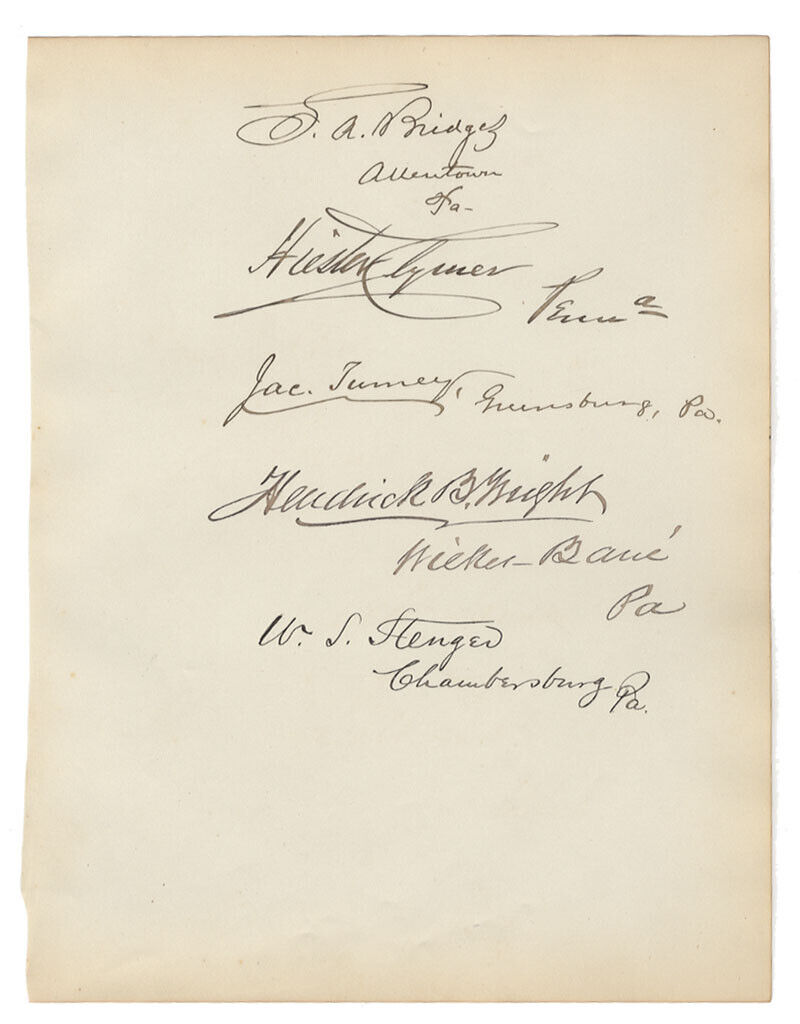 S. A. Bridges
Allentown
Pa-
Hiester Clymer
Penna
Jac. Turney, Greensburg, Pa.
Hendrick B. Wright
Wilkes-Barré
Pa
W. S. Stenger
Chambersburg Pa.